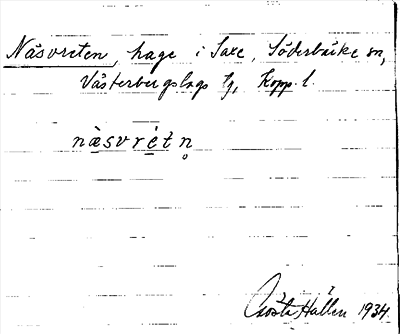 Näsvreten, hage i Saxe, Söderbärke sn,
Västerbergslags tg, Kopp. l.
næ̀svrét n̥
Gösta Hallén 1934.